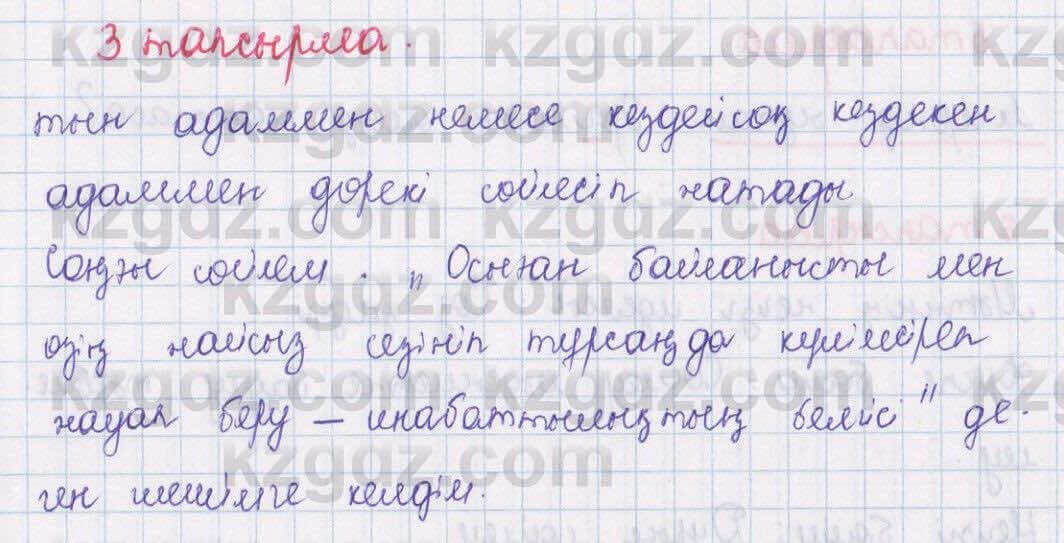 3 тапсырма.
тын адаммен немесе кездейсоқ кездекен
адаммен дөрекі сөйлесіп жатады
Соңғы сөйлем. "Осыған байланысты мен
өзің жайсыз сезініп тұрсаңда күлімсіреп
жауап беру – инабаттылықтың белгісі" де-
ген шешімге келдім.